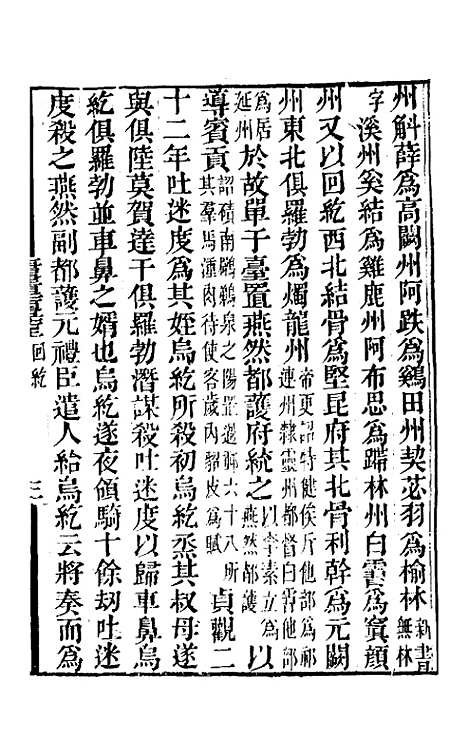 州斛薛爲高闕州阿跌爲鷄田州契苾羽爲榆林新書無林
字溪州奚結爲雞鹿州阿布思爲蹛林州白霫爲寘顏
州又以回紇西北結骨爲堅昆府其北骨利幹爲元闕
州東北俱羅勃爲燭龍州帝更詔特健俟斤他部爲祁連州隸靈州都督白霫他部
爲居延州於故單于臺置燕然都護府統之以李素立爲燕然都護以
導賓貢詔磧南鸊鵜泉之陽置過郵六十八所其羣馬湩肉待使客歲內貂皮爲賦貞觀二
十二年吐迷度爲其姪烏紇所殺初烏紇烝其叔母遂
與俱陸莫賀達干俱羅勃潛謀殺吐迷度以歸車鼻烏
紇俱羅勃並車鼻之婿也烏紇遂夜領騎十餘劫吐迷
度殺之燕然副都護元禮臣遣人給烏紇云將奏而爲
回紇